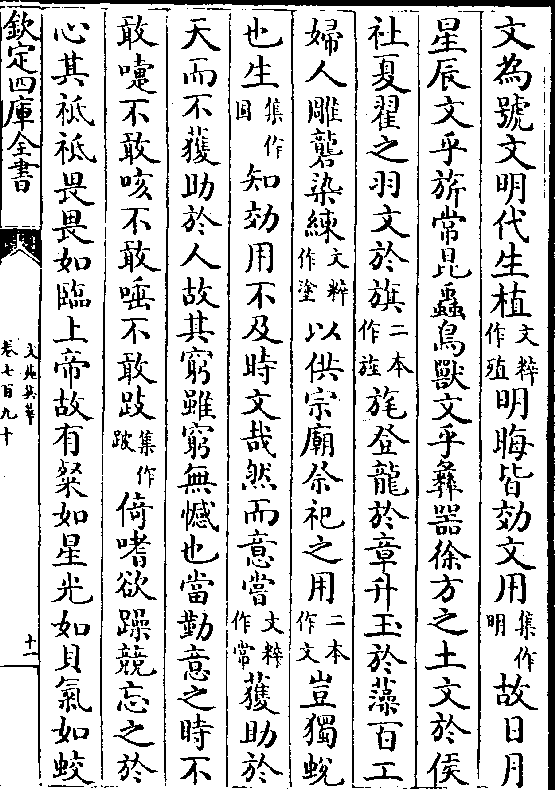 文為號文明代生植文粹作殖明晦皆効文用集作明故日月
星辰文乎旂常昆蟲鳥獸文乎彝器徐方之土文於侯
社夏翟之羽文於旗二本作旌旄登龍於章升玉於藻百工
婦人雕礱染練文粹作塗以供宗廟祭祀之用二本作文豈獨蛻
也生集作因知効用不及時文哉然而意嘗文粹作常獲助於
天而不獲助於人故其窮雖窮無憾也當勤意之時不
敢嚏不敢咳不敢唾不敢跛集作跛倚嗜欲躁競忘之於
心其祗祗畏畏如臨上帝故有粲如星光如貝氣如蛟
欽定四庫全書
文苑英華
卷七百九十
十一